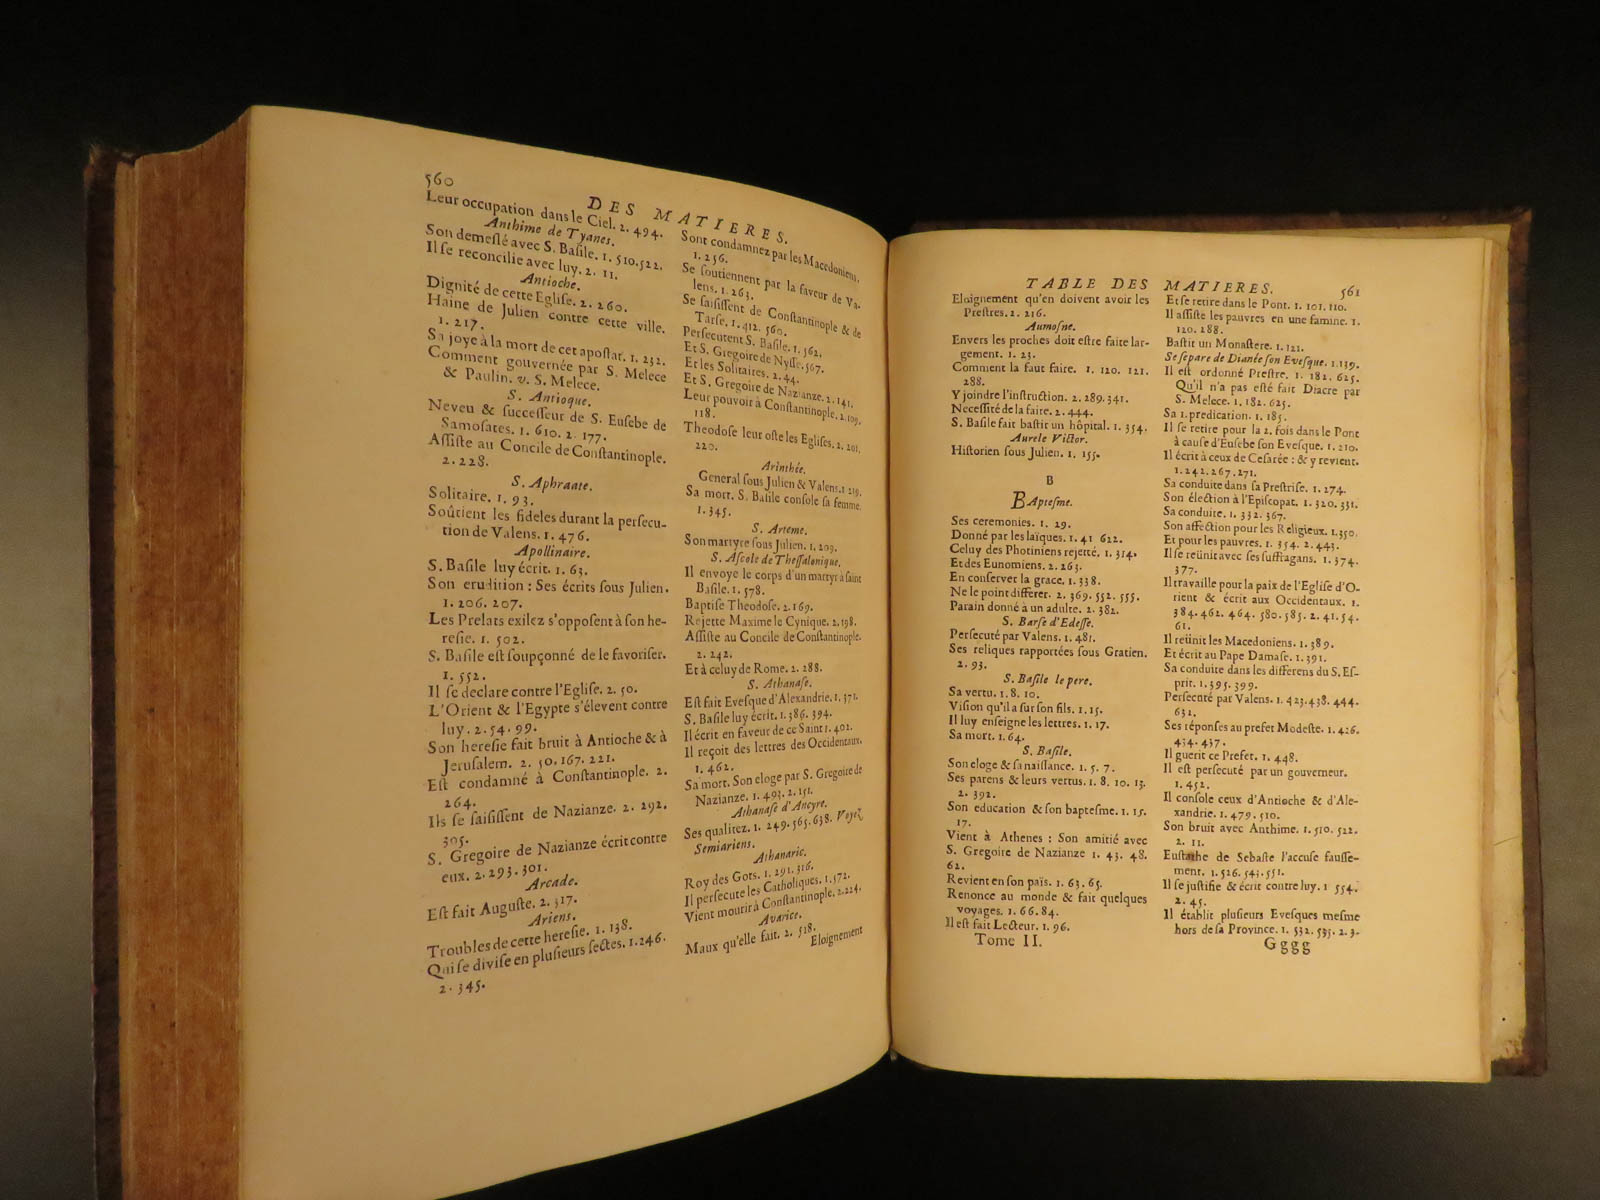 560
DES MATIERES.
Leur occupation dans le Ciel. 2. 494.
Anthime de Tyanes.
Son demeslé avec S. Basile. 1. 510. 522.
Il se reconcilie avec luy. 2. 11.
Antioche.
Dignité de cette Eglise. 2. 260.
Haine de Julien contre cette ville.
1. 217.
Sa joye à la mort de cet apostat. 1. 232.
Comment gouvernée par S. Melece
& Paulin. v. S. Melece.
S. Antioque.
Neveu & successeur de S. Eusebe de
Samosates. 1. 610. 2. 177.
Assiste au Concile de Constantinople.
2. 228.
S. Aphraate.
Solitaire. 1. 93.
Soûtient les fideles durant la persecu-
tion de Valens. 1. 476.
Apollinaire.
S. Basile luy écrit. 1. 63.
Son erudition : Ses écrits sous Julien.
1. 206. 207.
Les Prelats exilez s'opposent à son he-
resie. 1. 502.
S. Basile est soupçonné de le favoriser.
1. 552.
Il se declare contre l'Eglise. 2. 50.
L'Orient & l'Egypte s'élevent contre
luy. 2. 54. 99.
Son heresie fait bruit à Antioche & à
Jerusalem. 2. 50. 167. 221.
Est condamné à Constantinople. 2.
264.
Ils se saisissent de Nazianze. 2. 292.
305.
S. Gregoire de Nazianze écrit contre
eux. 2. 293. 301.
Arcade.
Est fait Auguste. 2. 317.
Ariens.
Troubles de cette heresie. 1. 138.
Qui se divise en plusieurs sectes. 1. 246.
2. 345.
Sont condamnez par les Macedoniens.
1. 256.
Se soutiennent par la faveur de Va-
lens. 1. 263.
Se saisissent de Constantinople & de
Tarse. 1. 412. 560.
Persecutent S. Basile. 1. 562.
Et S. Gregoire de Nysse. 567.
Et les Solitaires. 2. 44.
Et S. Gregoire de Nazianze. 2. 141.
Leur pouvoir à Constantinople. 2. 109.
118.
Theodose leur oste les Eglises. 2. 201.
220.
Arinthée.
General sous Julien & Valens. 1 219.
Sa mort. S. Basile console sa femme.
1. 345.
S. Arteme.
Son martyre sous Julien. 1. 209.
S. Ascole de Thessalonique.
Il envoye le corps d'un martyr à saint
Basile. 1. 578.
Baptise Theodose. 2. 169.
Rejette Maxime le Cynique. 2. 198.
Assiste au Concile de Constantinople.
2. 242.
Et à celuy de Rome. 2. 288.
S. Athanase.
Est fait Evesque d'Alexandrie. 1. 371.
S. Basile luy écrit. 1. 386. 394.
Il écrit en faveur de ce Saint 1. 402.
Il reçoit des lettres des Occidentaux.
1. 462.
Sa mort. Son eloge par S. Gregoire de
Nazianze. 1. 493. 2. 151.
Athanase d'Ancyre.
Ses qualitez. 1. 249. 565. 638. Voyez
Semiariens.
Athanaric.
Roy des Gots. 1. 291. 316.
Il persecute les Catholiques. 1. 572.
Vient mourir à Constantinople. 2. 224.
Avarice.
Maux qu'elle fait. 2. 518.
Eloignement
TABLE DES MATIERES. 561
Eloignement qu'en doivent avoir les
Prestres. 2. 216.
Aumosne.
Envers les proches doit estre faite lar-
gement. 1. 23.
Comment la faut faire. 1. 120. 121.
288.
Y joindre l'instruction. 2. 289. 341.
Necessité de la faire. 2. 444.
S. Basile fait bastir un hôpital. 1. 354.
Aurele Victor.
Historien sous Julien. 1. 155.
B
BAptesme.
Ses ceremonies. 1. 29.
Donné par les laïques. 1. 41 622.
Celuy des Photiniens rejetté. 1. 314.
Et des Eunomiens. 2. 263.
En conserver la grace. 1. 338.
Ne le point differer. 2. 369. 552. 555.
Parain donné à un adulte. 2. 382.
S. Barse d'Edesse.
Persecuté par Valens. 1. 481.
Ses reliques rapportées sous Gratien.
2. 93.
S. Basile le pere.
Sa vertu. 1. 8. 10.
Vision qu'il a sur son fils. 1. 15.
Il luy enseigne les lettres. 1. 17.
Sa mort. 1. 64.
S. Basile.
Son eloge & sa naissance. 1. 5. 7.
Ses parens & leurs vertus. 1. 8. 10. 13.
2. 392.
Son education & son baptesme. 1. 15.
17.
Vient à Athenes : Son amitié avec
S. Gregoire de Nazianze 1. 43. 48.
62.
Revient en son païs. 1. 63. 65.
Renonce au monde & fait quelques
voyages. 1. 66. 84.
Il est fait Lecteur. 1. 96.
Tome II.
Et se retire dans le Pont. 1. 101. 110.
Il assiste les pauvres en une famine. 1.
120. 288.
Bastit un Monastere. 1. 121.
Se separe de Dianée son Evesque. 1. 139.
Il est ordonné Prestre. 1. 182. 625.
Qu'il n'a pas esté fait Diacre par
S. Melece. 1. 182. 625.
Sa 1. predication. 1. 185.
Il se retire pour la 2. fois dans le Pont
à cause d'Eusebe son Evesque. 1. 210.
Il écrit à ceux de Cesarée : & y revient.
1. 242. 267. 271.
Sa conduite dans sa Prestrise. 1. 274.
Son élection à l'Episcopat. 1. 320. 331.
Sa conduite. 1. 332. 367.
Son affection pour les Religieux. 1. 350.
Et pour les pauvres. 1. 354. 2. 443.
Il se reünit avec ses suffragans. 1. 374.
377.
Il travaille pour la paix de l'Eglise d'O-
rient & écrit aux Occidentaux. 1.
384. 462. 464. 580. 585. 2. 41. 54.
61.
Il reünit les Macedoniens. 1. 389.
Et écrit au Pape Damase. 1. 391.
Sa conduite dans les differens du S. Es-
prit. 1. 395. 399.
Persecuté par Valens. 1. 423. 438. 444.
632.
Ses réponses au prefet Modeste. 1. 426.
434. 437.
Il guerit ce Prefet. 1. 448.
Il est persecuté par un gouverneur.
1. 452.
Il console ceux d'Antioche & d'Ale-
xandrie. 1. 479. 510.
Son bruit avec Anthime. 1. 510. 522.
2. 11.
Eustathe de Sebaste l'accuse fausse-
ment. 1. 526. 543. 551.
Il se justifie & écrit contre luy. 1 554.
2. 45.
Il établit plusieurs Evesques mesme
hors de sa Province. 1. 532. 535. 2. 3.
Gggg